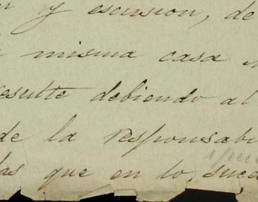 y escusion, de
misma casa
resulte debiendo al
de la responsabi
las que en lo suce